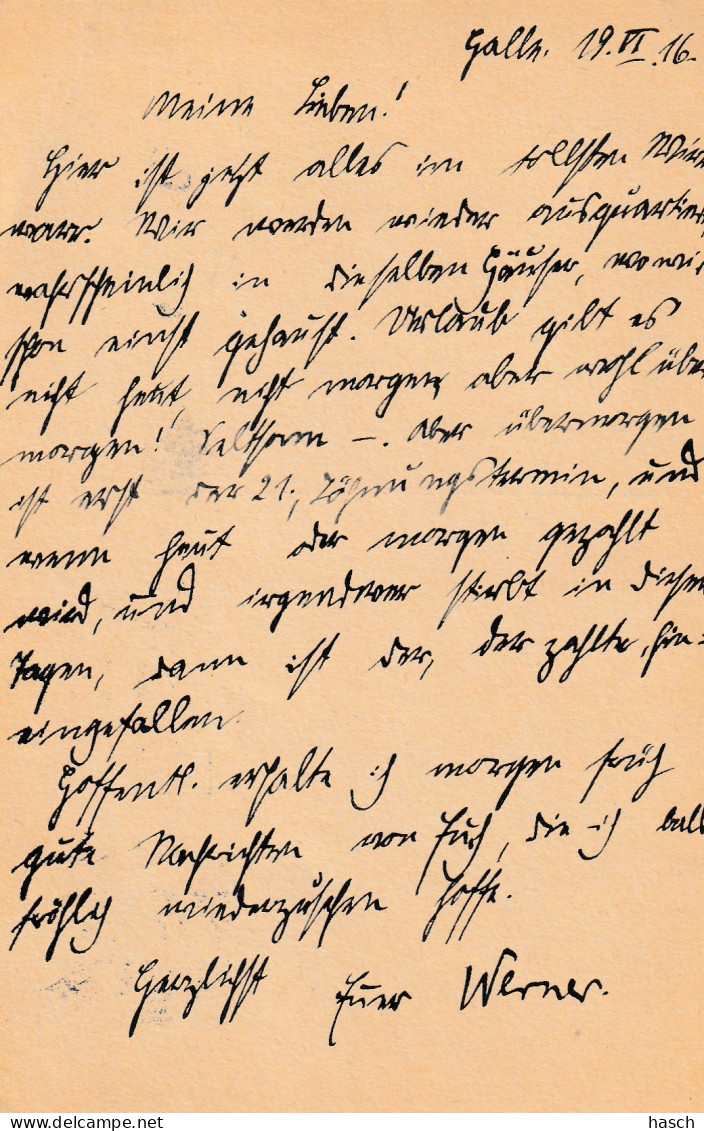 Halle. 19.VI.16.
Meine Lieben!
Hier ist jetzt alles im tollsten Wirr
warr. Wir werden wieder ausquartier
wahrscheinlich in dieselben Häuser, wo wir
schon einst gehaust. Urlaub gibt es
nicht heut, nicht morgen, aber wohl über
morgen! Seltsam –. Aber übermorgen
ist erst der 21., Löhnungstermin, und
wenn heut oder morgen gezahlt
wird, und irgendwer stirbt in diesen
Tagen, dann ist der, der zahlte, hin=
eingefallen.
Hoffentl. erhalte ich morgen früh
gute Nachrichten von Euch, die ich bald
fröhlich wiederzusehen hoffe.
Herzlichst Euer Werner.
hasch
Delcampe.net